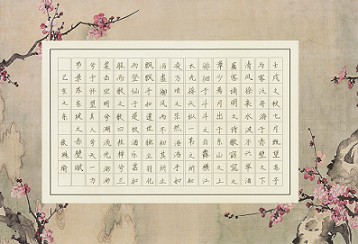 壬戌之秋七月既望苏子
与客泛舟游于赤壁之下
清风徐来水波不兴举酒
属客诵明月之诗歌窈窕之
章少焉月出于东山之上
徘徊于斗牛之间白露横江
水光接天纵一苇之所如
凌万顷之茫然浩浩乎如
冯虚御风而不知其所止
飘飘乎如遗世独立羽化
而登仙于是饮酒乐甚扣
舷而歌之歌曰桂棹兮兰
桨击空明兮溯流光渺渺
兮予怀望美人兮天一方
节录苏东坡之赤壁赋
己亥之冬